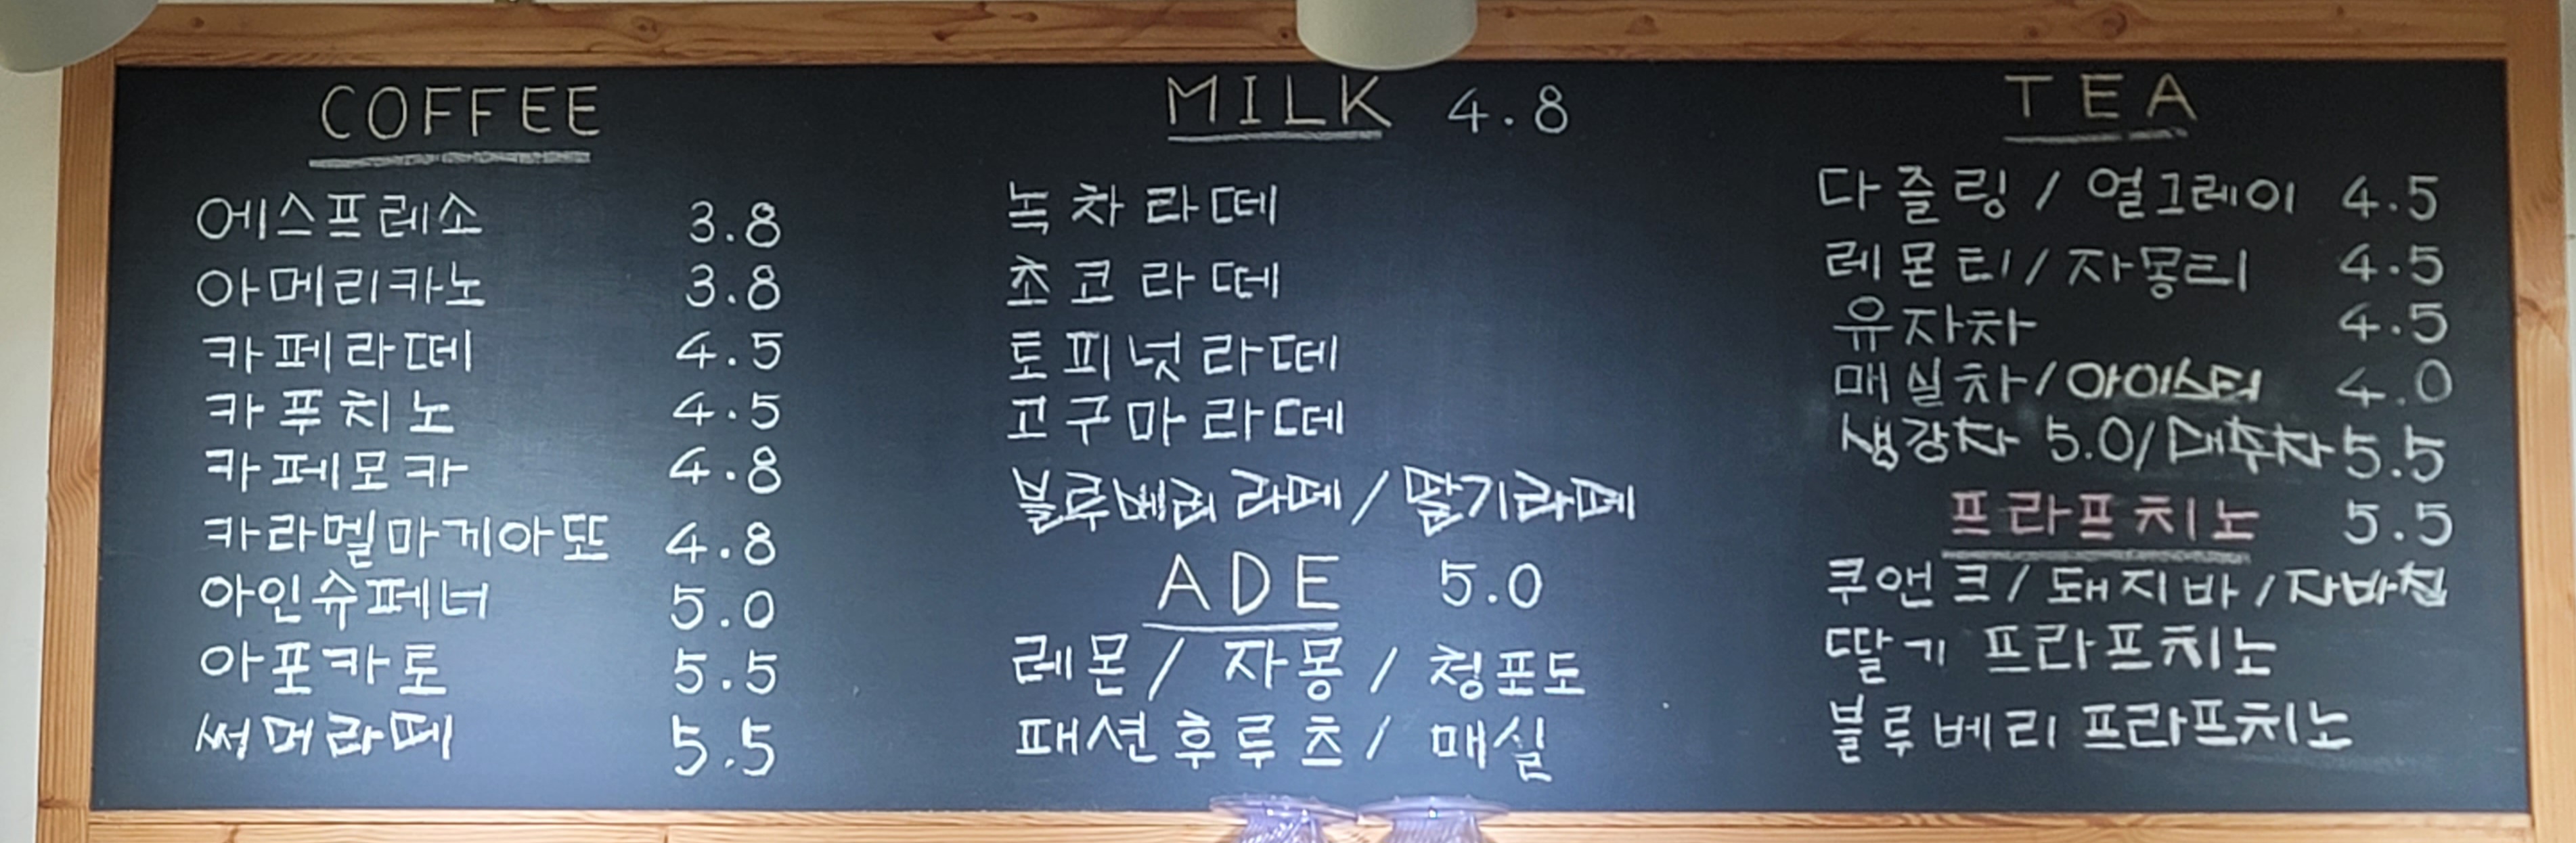 COFFEE
에스프레소 3.8
아메리카노 3.8
카페라떼 4.5
카푸치노 4.5
카페모카 4.8
카라멜마끼아또 4.8
아인슈페너 5.0
아포카토 5.5
써머라떼 5.5
MILK 4.8
녹차라떼
초코라떼
토피넛라떼
고구마라떼
블루베리라떼/딸기라떼
ADE 5.0
레몬/자몽/청포도
패션후루츠/매실
TEA
다즐링/얼그레이 4.5
레몬티/자몽티 4.5
유자차 4.5
매실차/아이스티 4.0
생강차 5.0/대추차 5.5
프라프치노 5.5
쿠앤크/돼지바/자바칩
딸기 프라프치노
블루베리 프라프치노